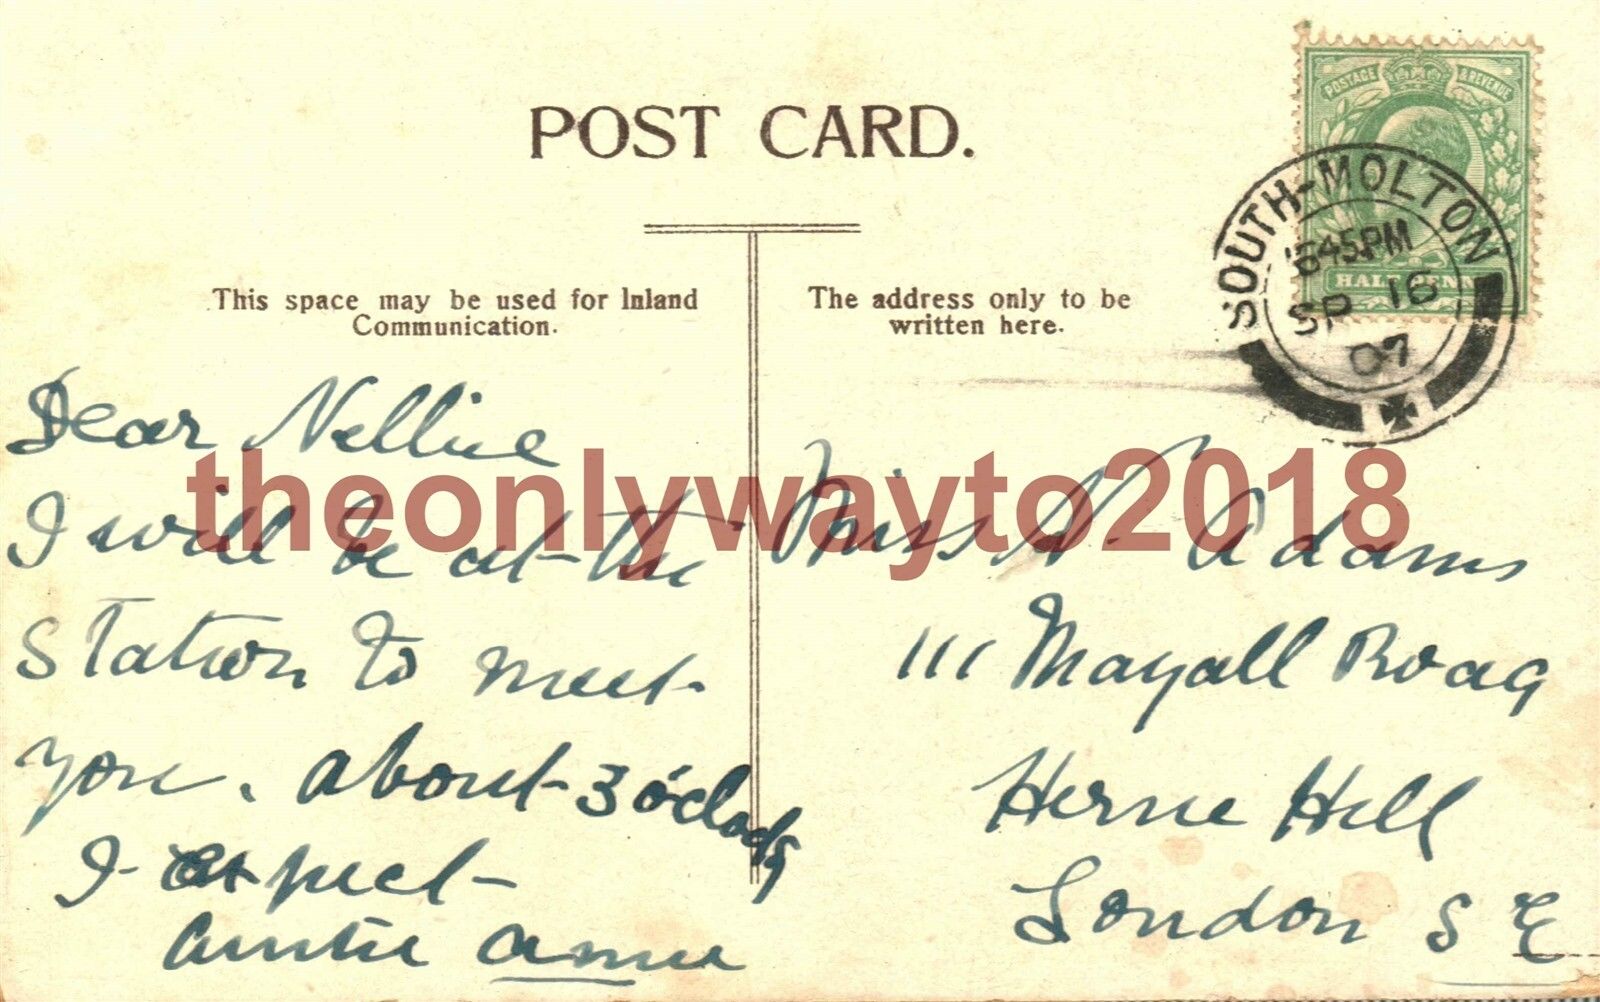 POST CARD.
POSTAGE & REVENUE
SOUTH-MOLTON
645PM
SP 16
07
This space may be used for Inland
Communication.
The address only to be
written here.
Dear Nellie
I will be at the
Station to meet
you. about 3 o'clock
I expect
Auntie Annie
Miss N. Adams
111 Mayall Road
Herne Hill
London S E
theonlywayto2018